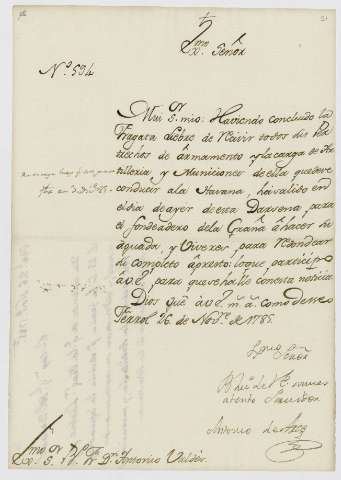 Exmo Señor
Nº. 534
Mui Sr. mio: Haviendo concluido la
Fragata Liebre de Recivir todos sus Per
trechos de armamento y la carga de Ar
tilleria, y Municiones de ella que deve
conducir a la Havana, ha salido en
el dia de ayer de esta Darsena, para
el fondeadero de la Graña à hacer su
aguada, y Viveres, para Reemplazar
su completo apresto: lo que participo
à V.E. para que se halle con esta noticia.
Dios gue. à V.E. ms. as. como deseo
Ferrol 26. de Novre. de 1785.
Exmo. Señor
B.L.M. de V.E. su mayor
atento Servidor
Antonio de Arce
Exmo. Sr. Bo. Fr. Dn. Antonio Valdés.